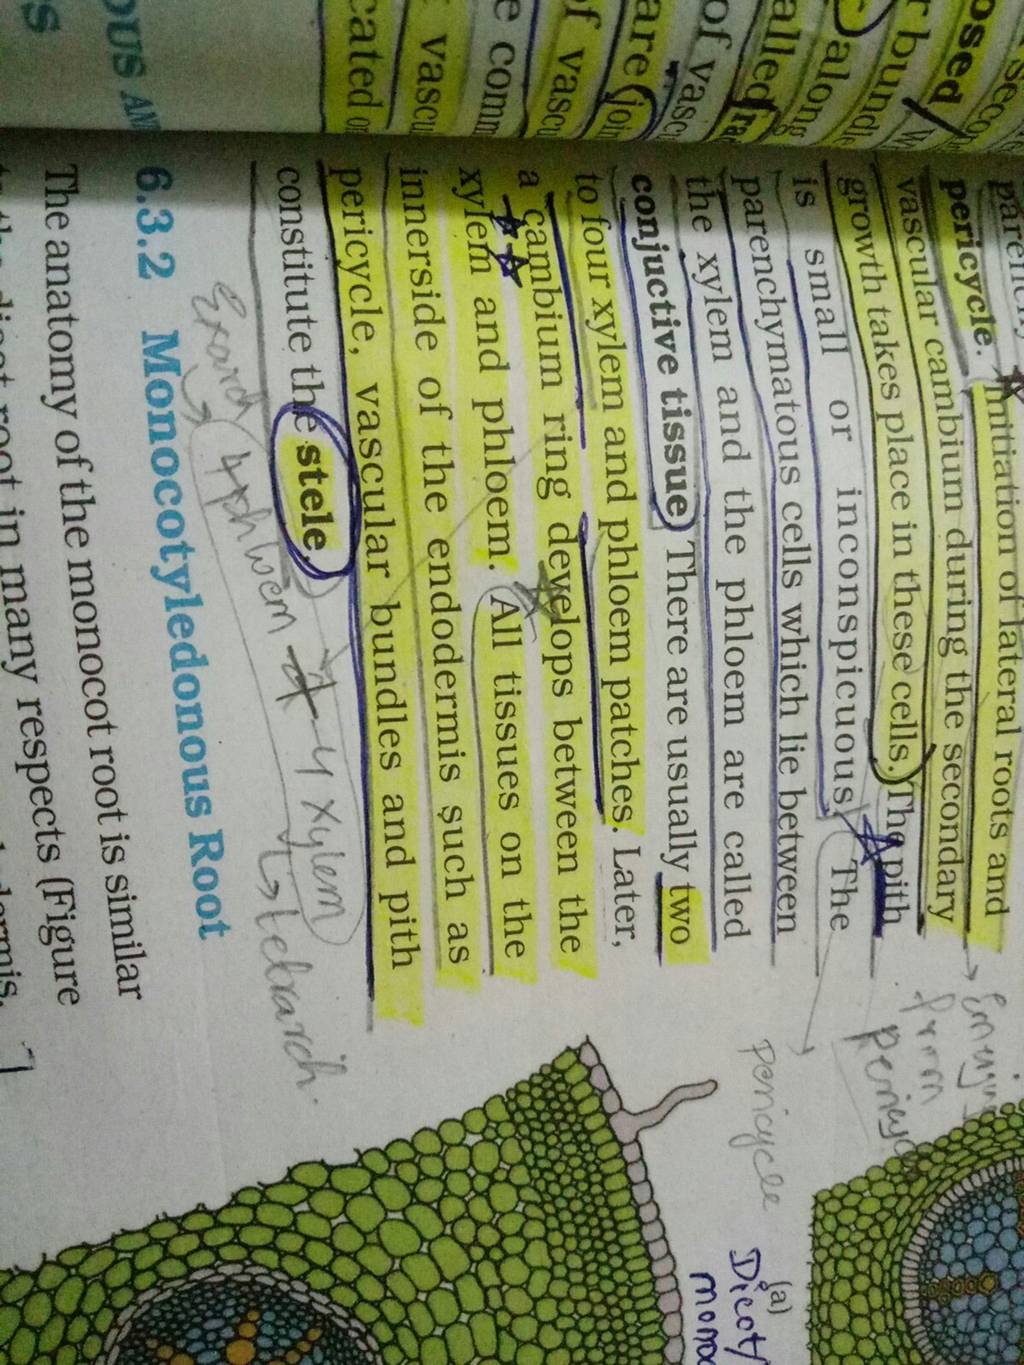 pericycle. Initiation of lateral roots and
vascular cambium during the secondary
growth takes place in these cells. The pith
is small or inconspicuous. The
parenchymatous cells which lie between
the xylem and the phloem are called
conjuctive tissue. There are usually two
to four xylem and phloem patches. Later,
a cambium ring develops between the
xylem and phloem. All tissues on the
innerside of the endodermis such as
pericycle, vascular bundles and pith
constitute the stele.
4 xylem
tetrarch.
6.3.2 Monocotyledonous Root
The anatomy of the monocot root is similar
root in many respects (Figure
from
pericycle
(a)
Dicot/
along
alled
of vascu
are
of vascu
e comm
vascu
cated